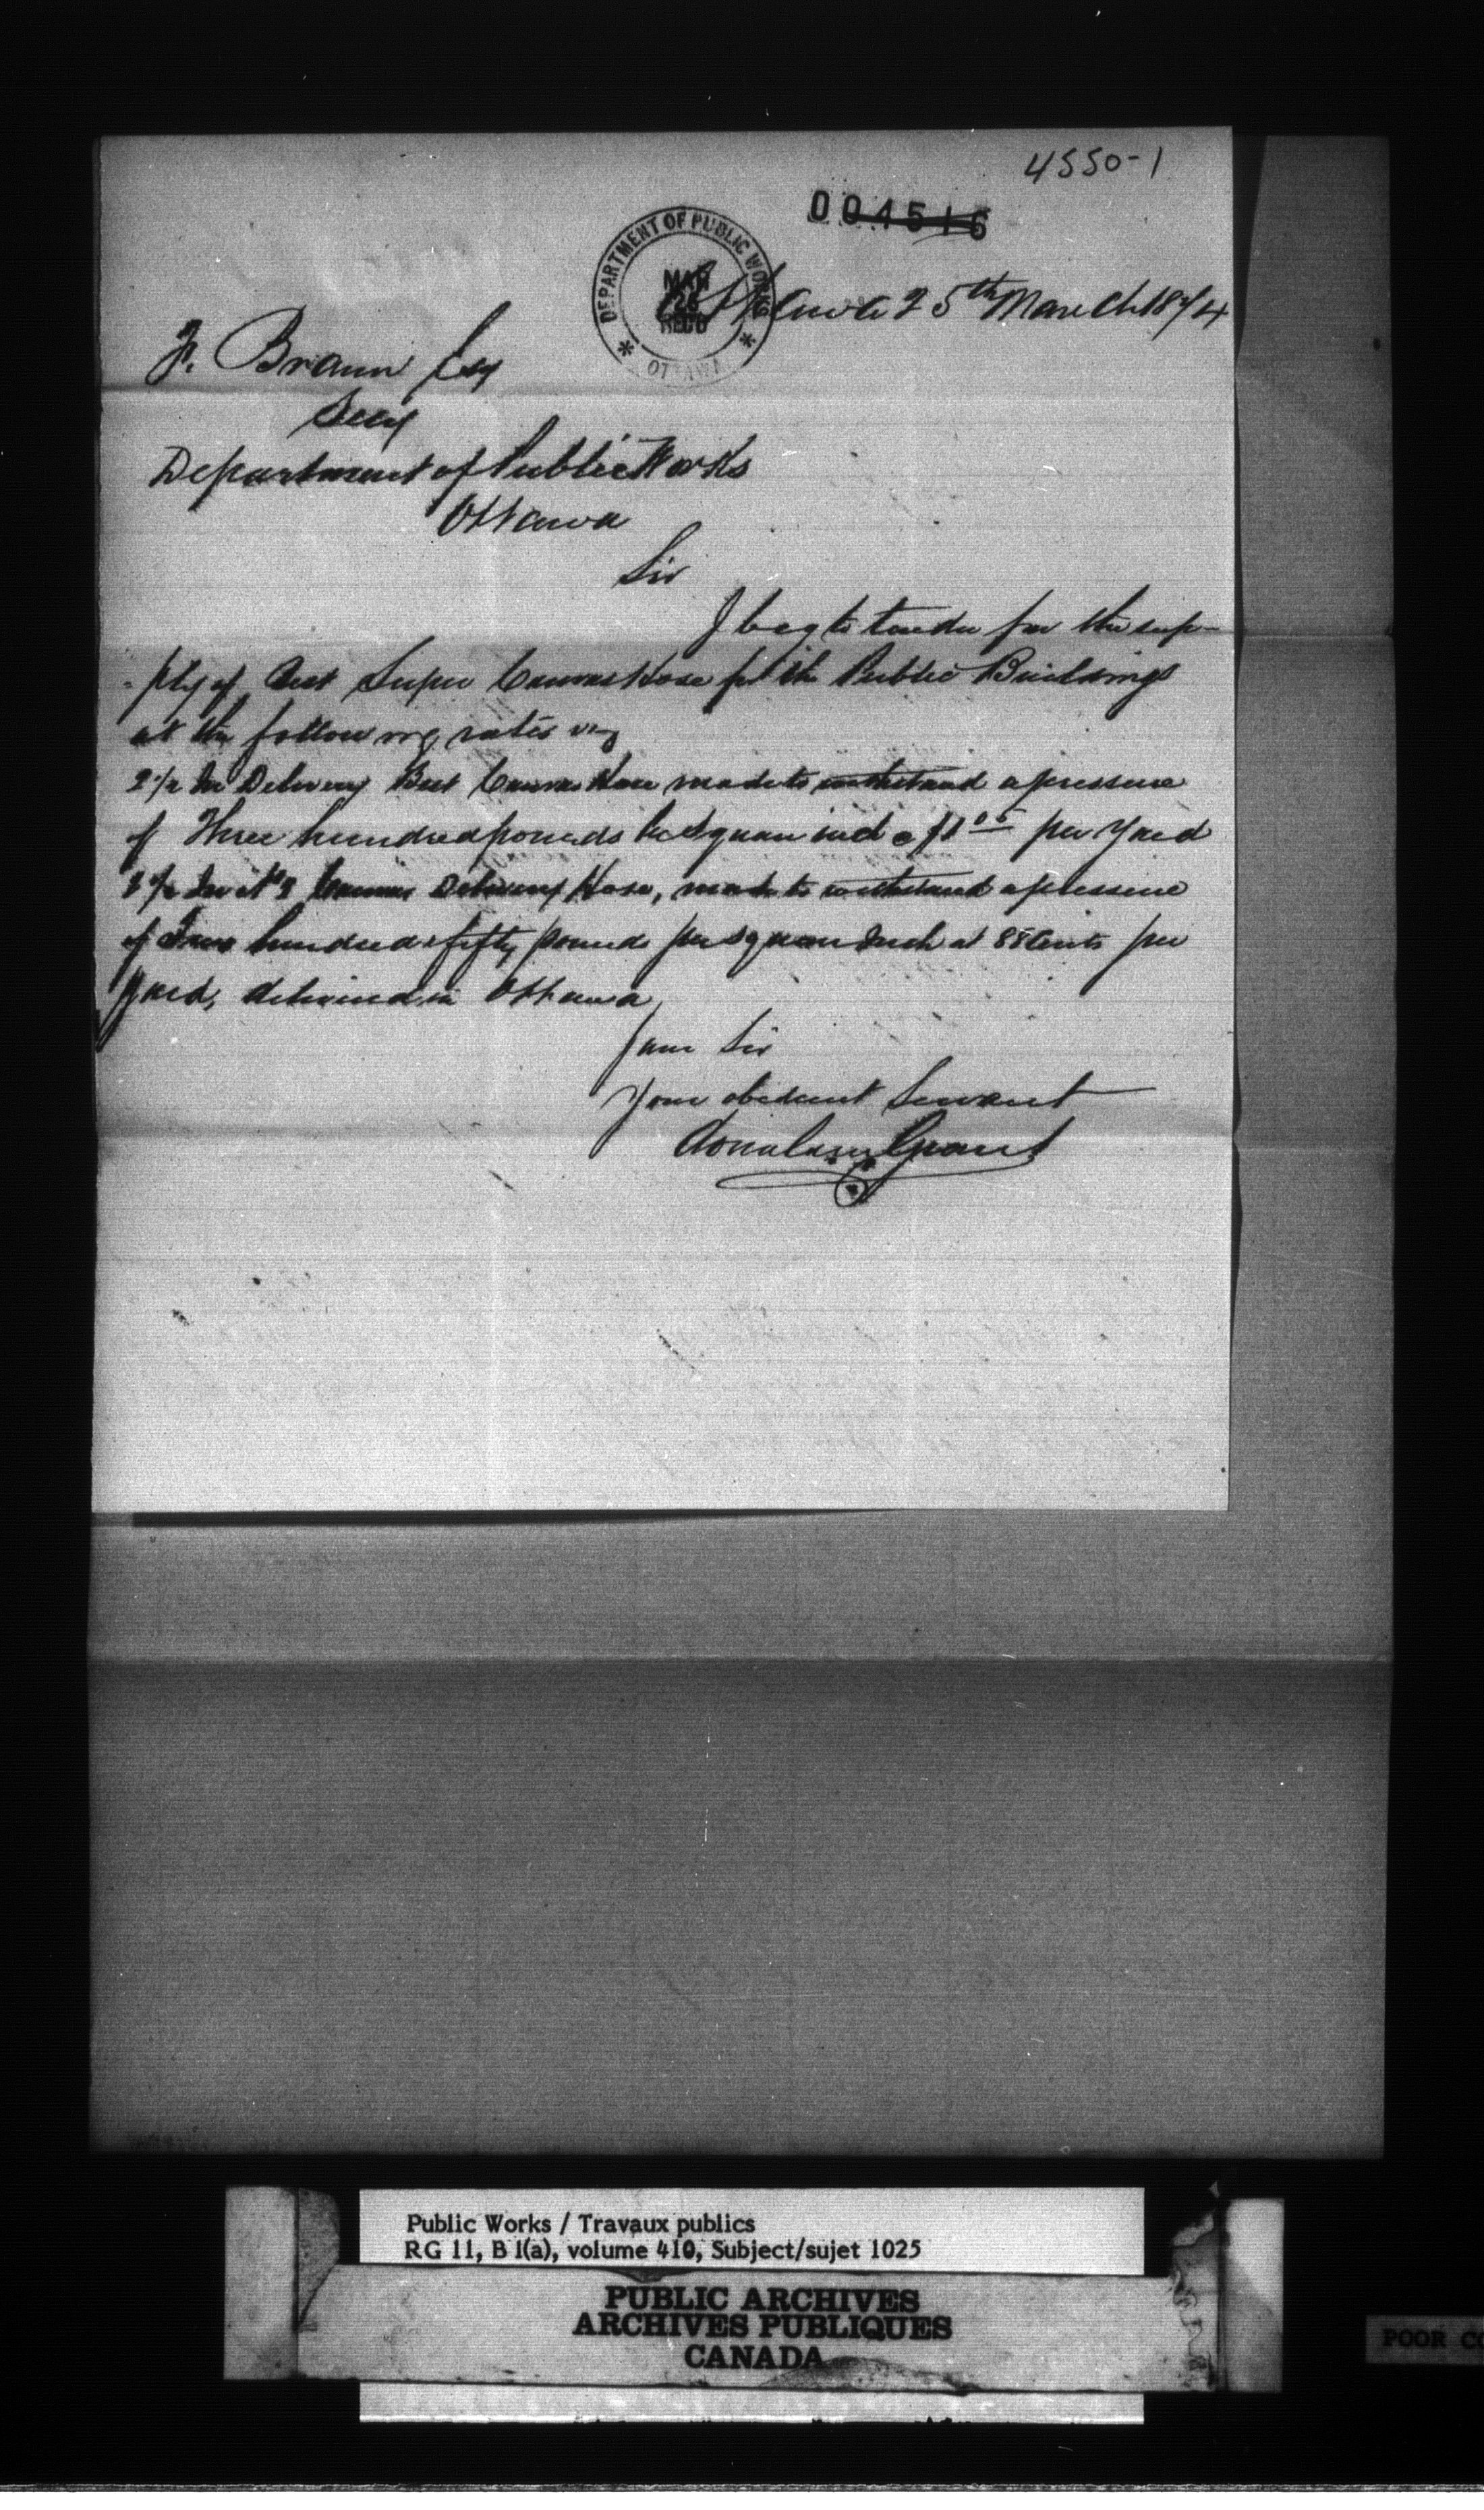 4550-1
004516
DEPARTMENT OF PUBLIC WORKS
MAR
26
RECD
OTTAWA
Ottawa 25th March 1874
F. Braun Esq
Secy
Department of Public Works
Ottawa
Sir
I beg to tender for the sup-
-ply of Best Super Canvas Hose for the Public Buildings
at the following rates viz
2 1/2 In Delivery Best Canvas Hose made to withstand a pressure
of Three hundred pounds per square inch @ $1 05 per Yard
2 1/2 In No 2 Canvas Delivery Hose, made to withstand a pressure
of Two hundred & fifty pounds per square Inch at 88 Cents per
Yard, delivered in Ottawa
I am Sir
Your obedient Servant
Grant
Public Works / Travaux publics
RG 11, B 1(a), volume 410, Subject/sujet 1025
PUBLIC ARCHIVES
ARCHIVES PUBLIQUES
CANADA
POOR CO